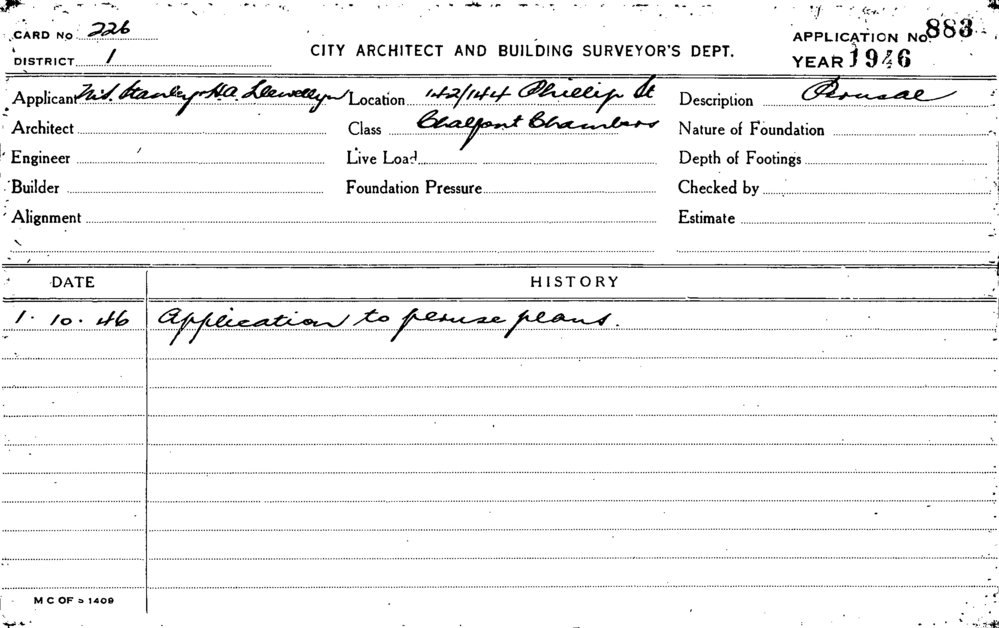 CARD No 226
DISTRICT 1
CITY ARCHITECT AND BUILDING SURVEYOR'S DEPT.
APPLICATION No. 883
YEAR 1946
Applicant Stanley H.A. Llewellyn
Location 142/144 Phillip St
Description Perusal
Architect
Class Chalfont Chambers
Nature of Foundation
Engineer
Live Load
Depth of Footings
Builder
Foundation Pressure
Checked by
Alignment
Estimate
DATE HISTORY
1. 10. 46 Application to peruse plans.
M C OF S 1409